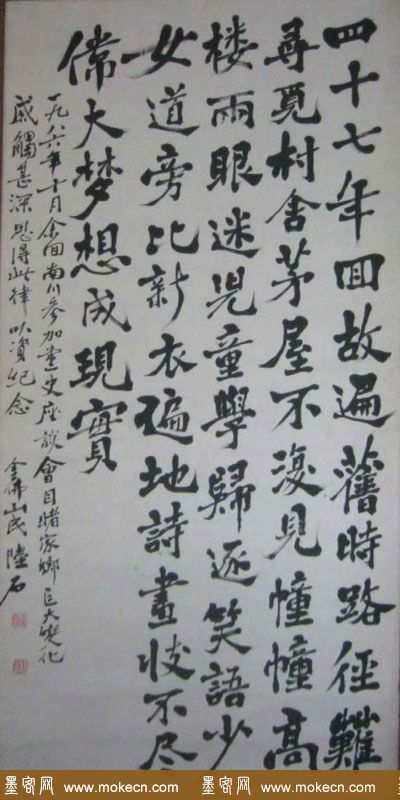 四十七年囬故遍舊時路徑難
尋覓村舍茅屋不復見幢幢高
楼兩眼迷児童學歸逐笑語少
女道旁比新衣遍地詩畫收不尽
偉大梦想成現實
一九八六年十月余囬南川参加党史座談會目睹家鄉巨大变化
感觸甚深思得此律以資紀念 金佛山民陸石
墨客网 www.mokecn.com 墨客网 www.mokecn.com